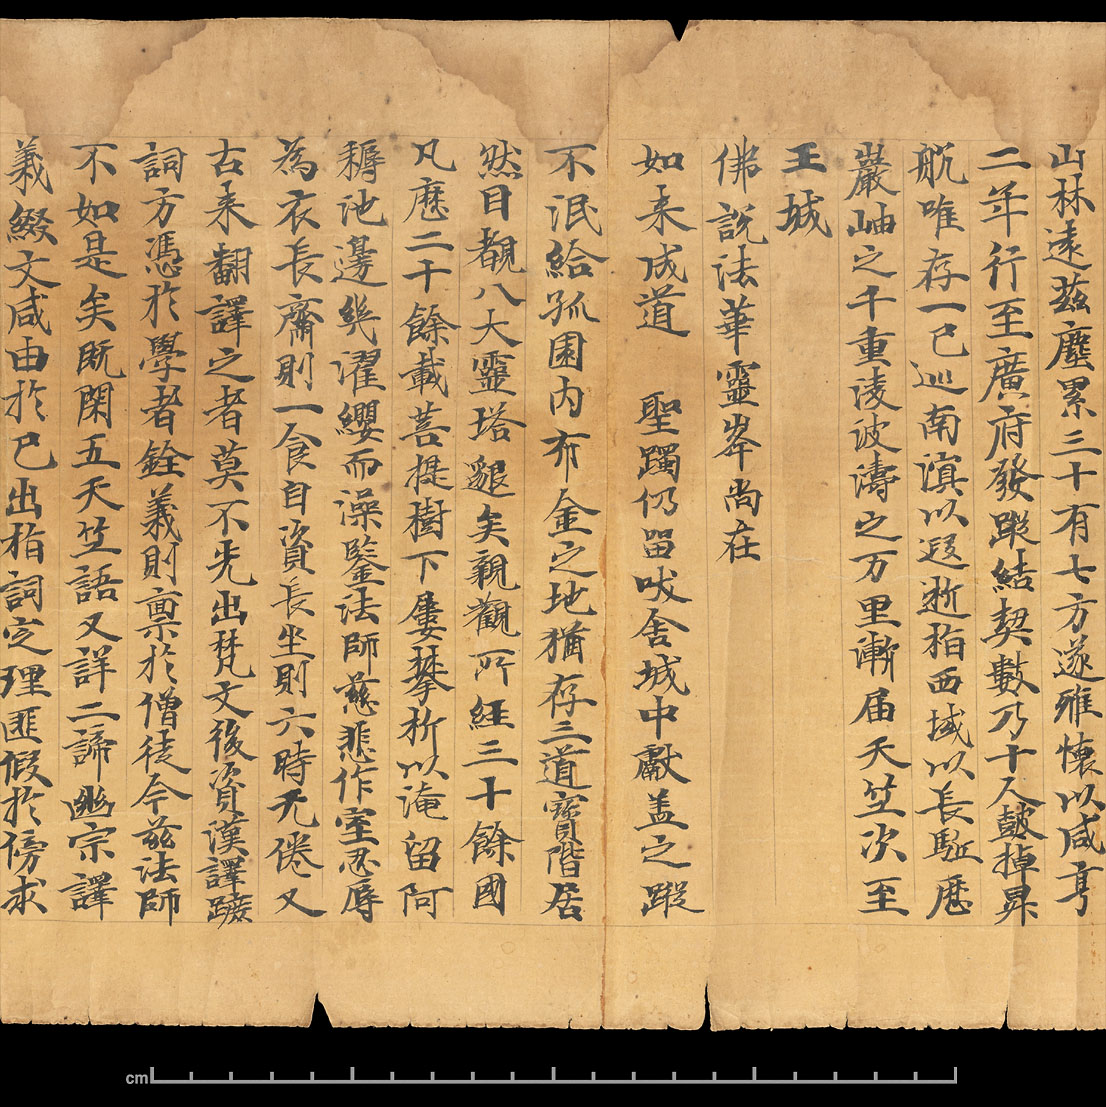 山林遠茲塵累三十有七方遂雅懷以咸亨
二年行至廣府發蹤結契數乃十人鼓棹昇
航唯存一己巡南溟以遐逝指西域以長駈歷
巖岫之千重淩波濤之万里漸届天竺次至
王城
佛説法華靈峯尚在
如来成道　聖躅仍留吠舍城中獻盖之蹤
不泯給孤園内布金之地猶存三道寳階居
然目覩八大靈塔邈矣親觀所經三十餘國
凡歷二十餘載菩提樹下屢攀折以淹留阿
耨池邊幾濯纓而澡鋻法師慈悲作室忍辱
為衣長齋則一食自資長坐則六時无倦又
古来翻譯之者莫不先出梵文後資漢譯蹠
詞方憑於學者銓義則稟於僧徒今兹法師
不如是矣既閑五天竺語又詳二諦幽宗譯
義綴文咸由於己出指詞定理匪假於傍求
cm